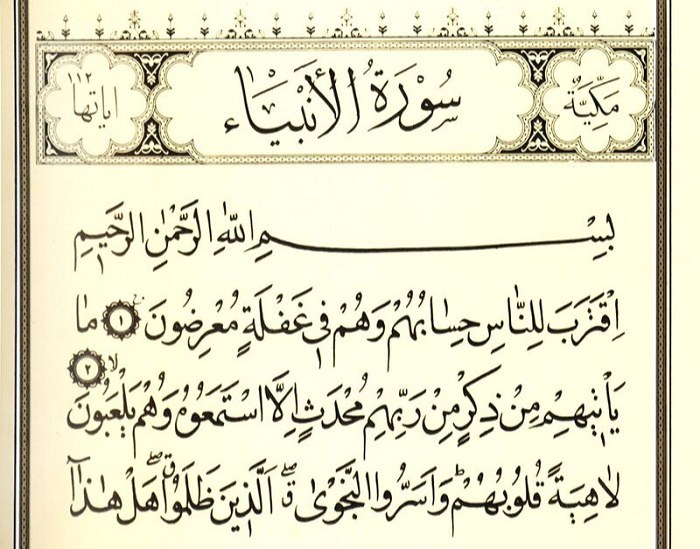 مَكِّيَّةٌ
سُوْرَةُ الْأَنْبِيَاءِ
اٰيَاتُهَا ١١٢
بِسْمِ اللّٰهِ الرَّحْمٰنِ الرَّحٖيمِ
اِقْتَرَبَ لِلنَّاسِ حِسَابُهُمْ وَهُمْ فٖى غَفْلَةٍ مُعْرِضُونَ ۚ ١ مَا
يَاْتٖيهِمْ مِنْ ذِكْرٍ مِنْ رَبِّهِمْ مُحْدَثٍ اِلَّا اسْتَمَعُوهُ وَهُمْ يَلْعَبُونَ ۙ ٢
لَاهِيَةً قُلُوبُهُمْ ط وَاَسَرُّوا النَّجْوٰى ق الَّذٖينَ ظَلَمُوا ق هَلْ هٰذَٓا